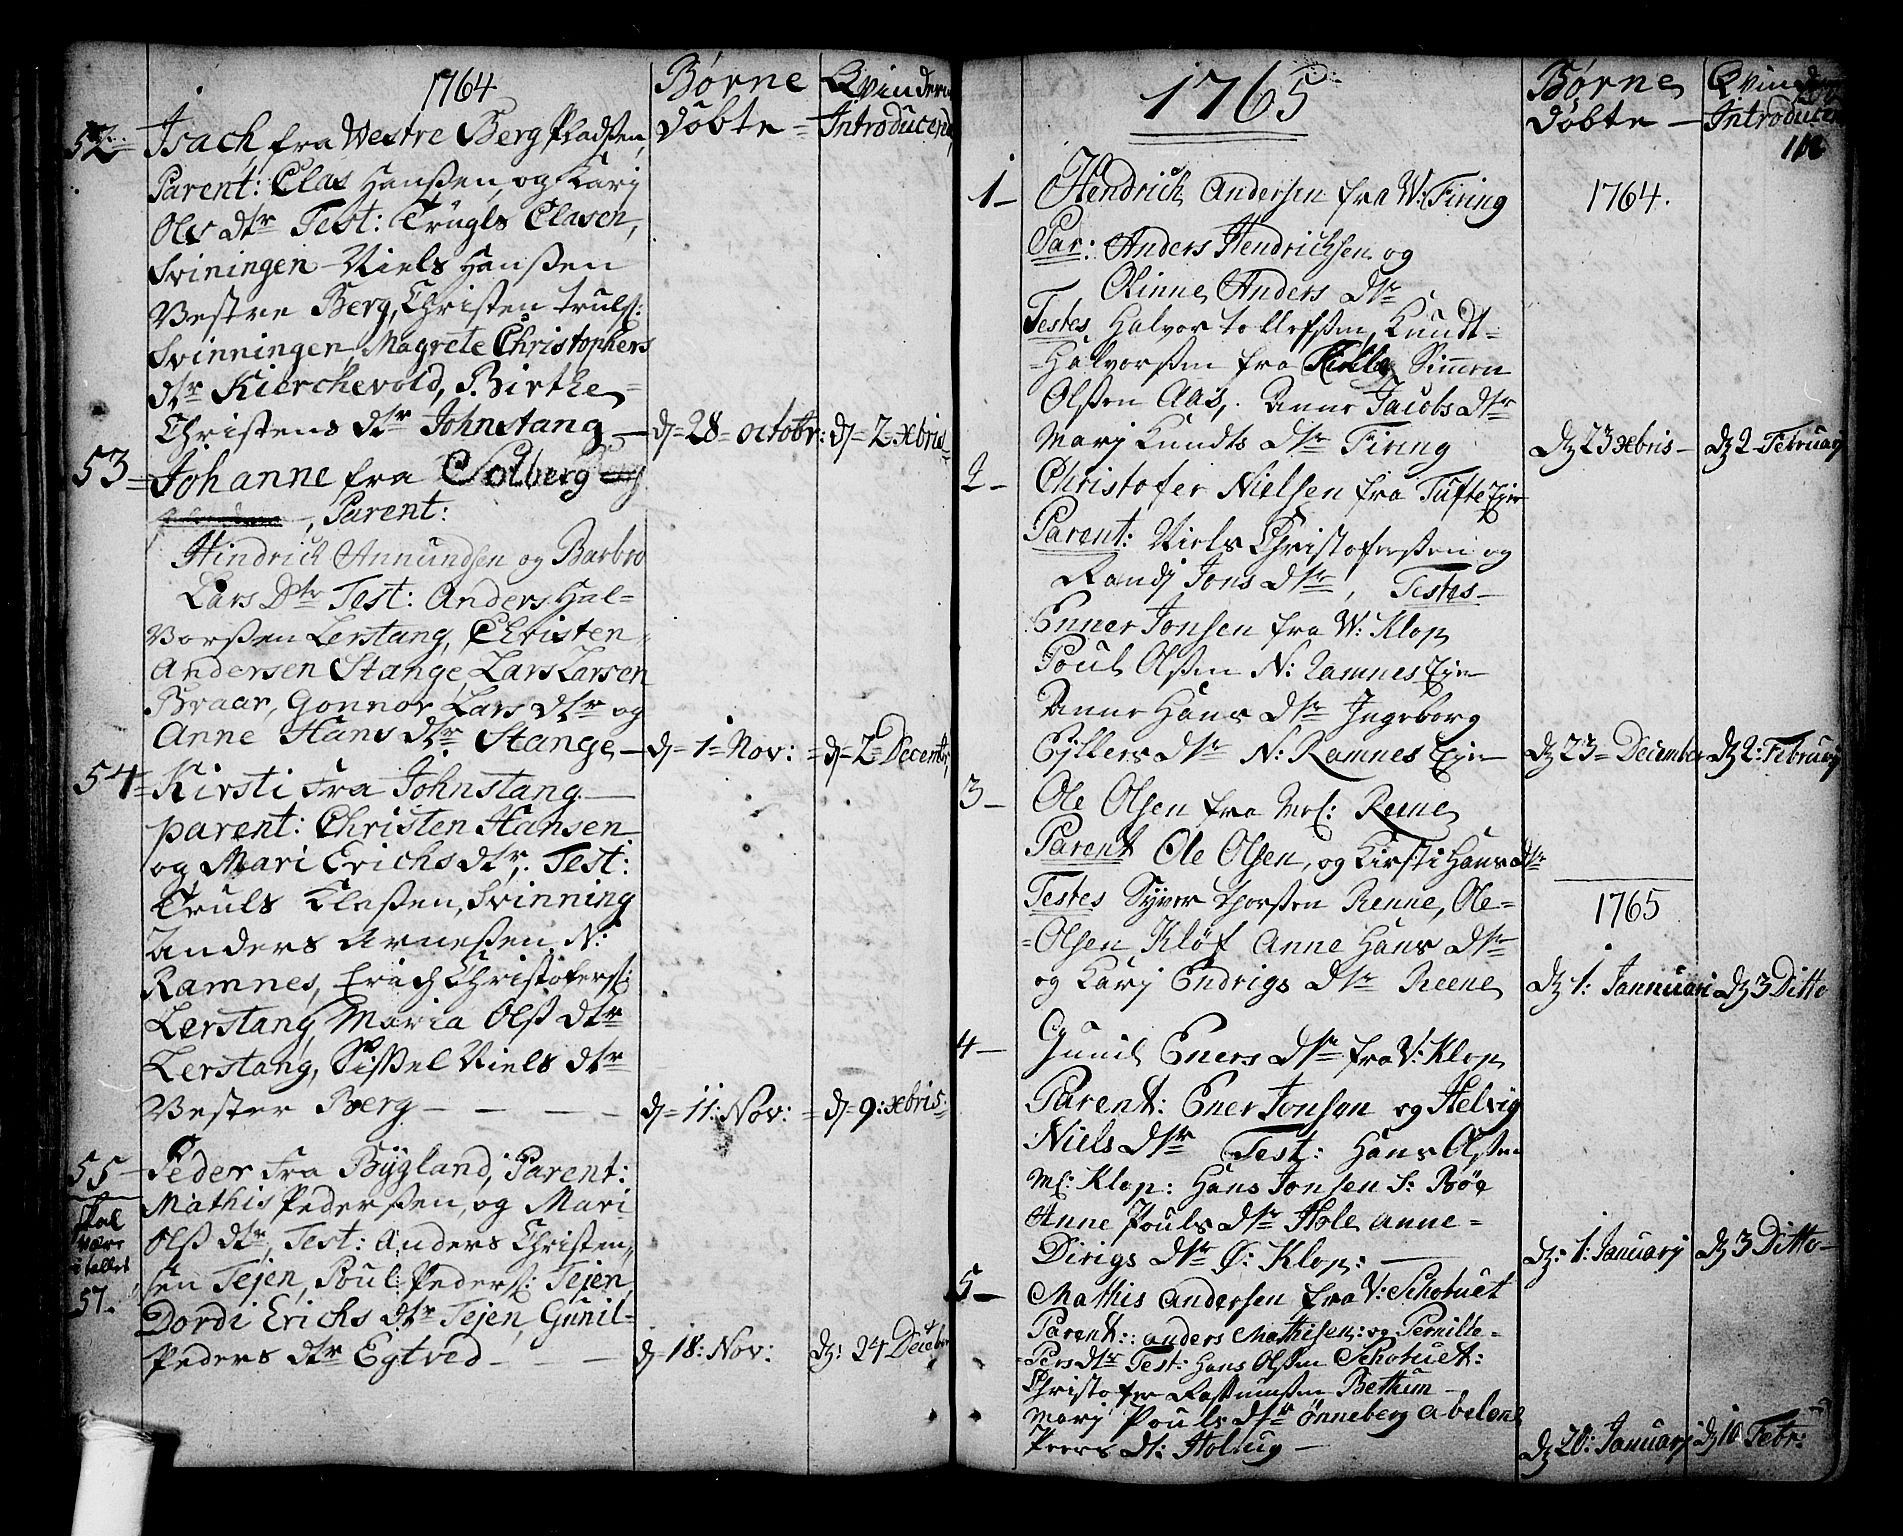 1764
Børne
Døbte =
Qvinderne
Introducerede
52 =
Isach fra Westre Berg Pladsen,
Parent: Clas Hanßen, og Karj
Ols dtr Test: Trugls Clasen,
Sviningen Niels Hanßen
Vestre Berg, Christen truls:
Svinningen, Magrete Christophers
dtr Kierchevold, Birthe
Christens dtr Johnstang — d= 28= octobr: d= 2 xbris=
53 =
Johanne fra Solberg
Parent:
Hindrich Annundsen og Barbro
Lars Dtr Test: Anders Hal=
vorßen Lerstang, Christen
Andersen Stange, Lars Larsen
Braar, Gonnor Lars dtr og
Anne Hans dtr Stange — d= 1= Nov: = d= 2= Decembr,
54 =
Kirsti fra Johnstang —
parent: Christen Hansen
og Mari Erichs dtr, Test:
Truls Claßen, Svinning
Anders Arneßen N:
Ramnes, Erich Christofers:
Lerstang, Maria Olß dtr
Lerstang, Sißel Niels dtr
Vester Berg — — — — d= 11: Nov: = d= 9: xbris=
55
Peder fra Bÿgland, Parent:
Mathis Pederßen, og Mari
Olß dtr, Test: Anders Christen,
sen Tejen, Poul Peders: Tejen
Dordi Erichs dtr Tejen, Gunil=
Peders dtr Egtved — — — d= 18: Nov: dz: 24 Decebr
skal
være
i tallet
57.
1765
Børne
Døbte —
Qvinder
Introducer
116
1764.
1 —
Hendrich Andersen fra W: Firing
Par: Anders Hendrichsen og
Olinne Anders Dtr
Testes Halvor tollefsen, Knudt=
=Halvorßen fra Simen
Olßen Aas, Anne Jacobs dtr
Marj Knudts dtr Firing dz 23 xbris — dz 2 Februarj
2 —
Christofer Nielsen fra Tufte Eje
Parent: Niels Christoferßen og
Randj Jons Dtr, Testes —
Enner Jonsen fra W: Klop
Poul Olßen N: Ramnes Eje
Anne Hans Dtr Ingeborg
Eyllers dtr N: Ramnes Eje dz 23= December dz 2: Februarj
3 —
Ole Olsen fra Ml: Reene
Parent Ole Olsen, og Kirsti Hans dtr
1765
Testes Syver thorßen Renne, Ole=
=Olsen Kløf Anne Hans Dtr
og Karj Endrigs Dtr Reene dz 1: Jannuari dz 3 Ditto
4 —
Gunil Eners Dtr fra V: Klop
Parent: Ener Jonsen og Helvig
Niels Dtr Test: Hans Olßen
Ml: Klop: Hans Jonsen S: Bøe
Anne Pouls Dtr Hole anne=
Dirigs Dtr Ø: Klop: — dz: 1: Januarj dz 3 Ditto —
5 —
Mathis Andersen fra V: Schotuet
Parent: anders Mathisen: og Pernille=
=Pers dtr Test: Hans Olßen Schotuet:
Christofer Rasmußen Bettum —
Marj Pouls Dtr Ønneberg abelone
Peers dt: Holtug — dz 20: Januarj dz 10 Febr: